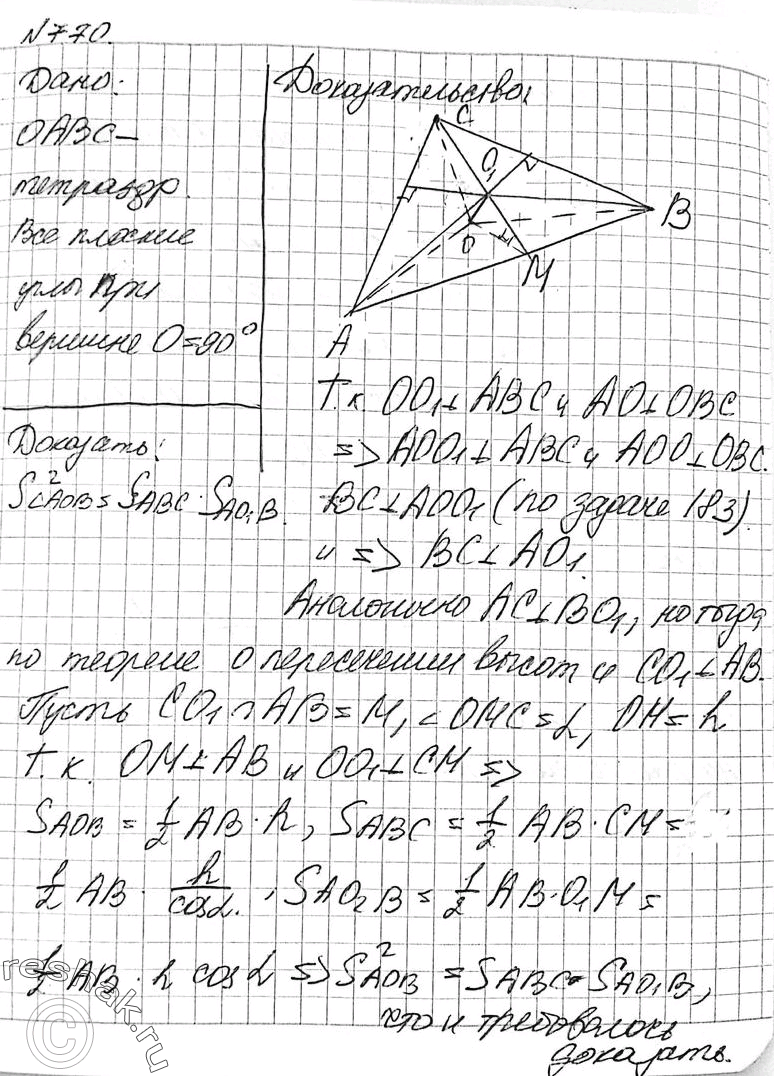 N770.
Дано:
OABC-
тетраэдр.
Все плоские
углы при
вершине O=90°
Доказать:
S²AOB = SABC · SAO₁B.
Доказательство:
C
O₁
B
O
M
A
Т.к. OO₁⊥ABC и AO⊥OBC
=> AOO₁⊥ABC и AOO⊥OBC.
BC⊥AOO₁ (по задаче 183)
и => BC⊥AO₁.
Аналогично AC⊥BO₁, но тогда
по теореме о пересечении высот и CO₁⊥AB.
Пусть CO₁∩AB=M, <OMC=α, OH=h
Т.к. OM⊥AB и OO₁⊥CM =>
SAOB = 1/2 AB·h, SABC = 1/2 AB·CM =
1/2 AB · h/cosα. , SAO₂B = 1/2 AB·O₁M =
1/2 AB · h cosα => S²AOB = SABC · SAO₁B,
что и требовалось
доказать.
reshak.ru